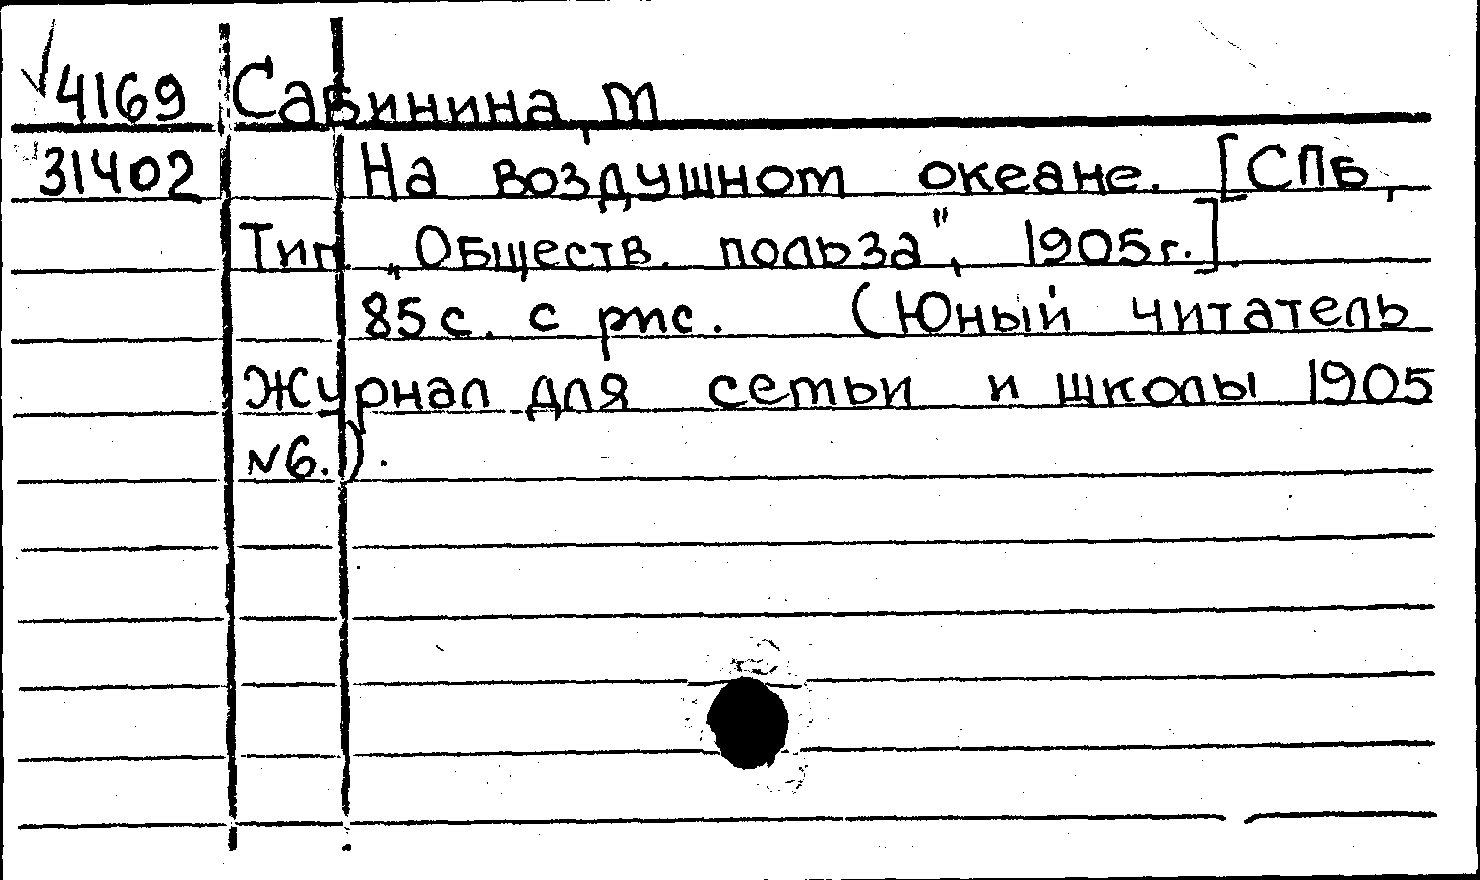 4169 Савинина, М
31402 На воздушном океане. [СПб,
Тип. „Обществ. польза", 1905г.]
85 с. с рис. (Юный читатель
Журнал для семьи и школы 1905
N6.).